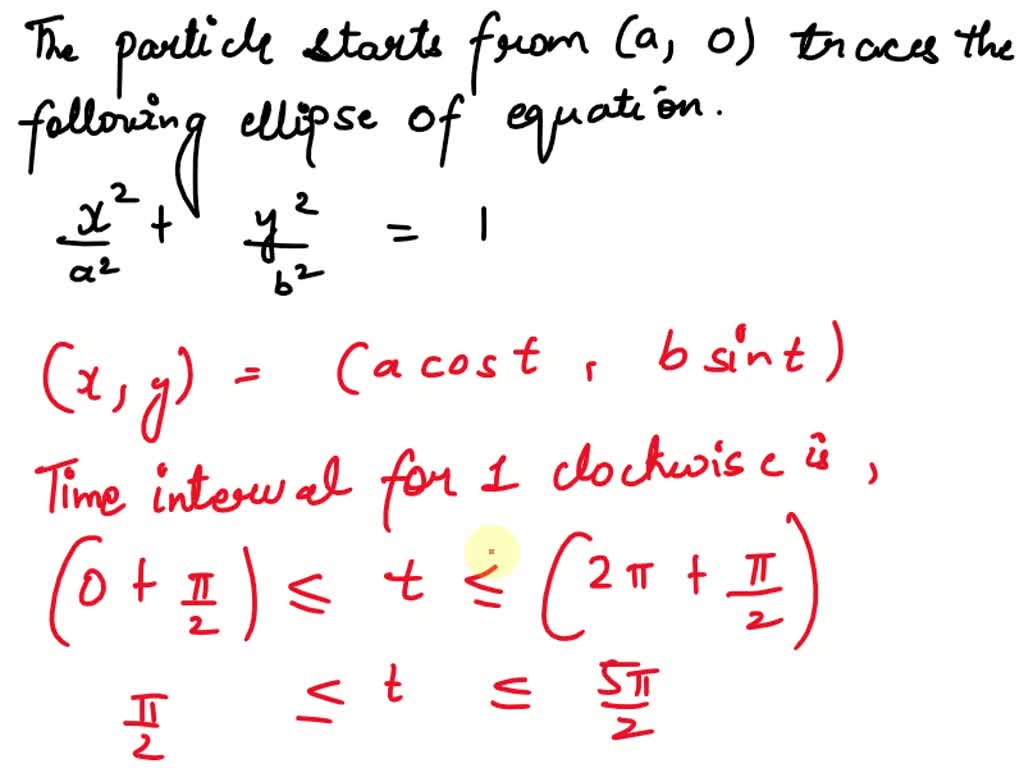 The particle starts from (a, 0) traces the
following ellipse of equation.
x²/a² + y²/b² = 1
(x, y) = (a cos t , b sin t)
Time interval for 1 clockwise is,
(0 + π/2) ≤ t ≤ (2π + π/2)
π/2 ≤ t ≤ 5π/2